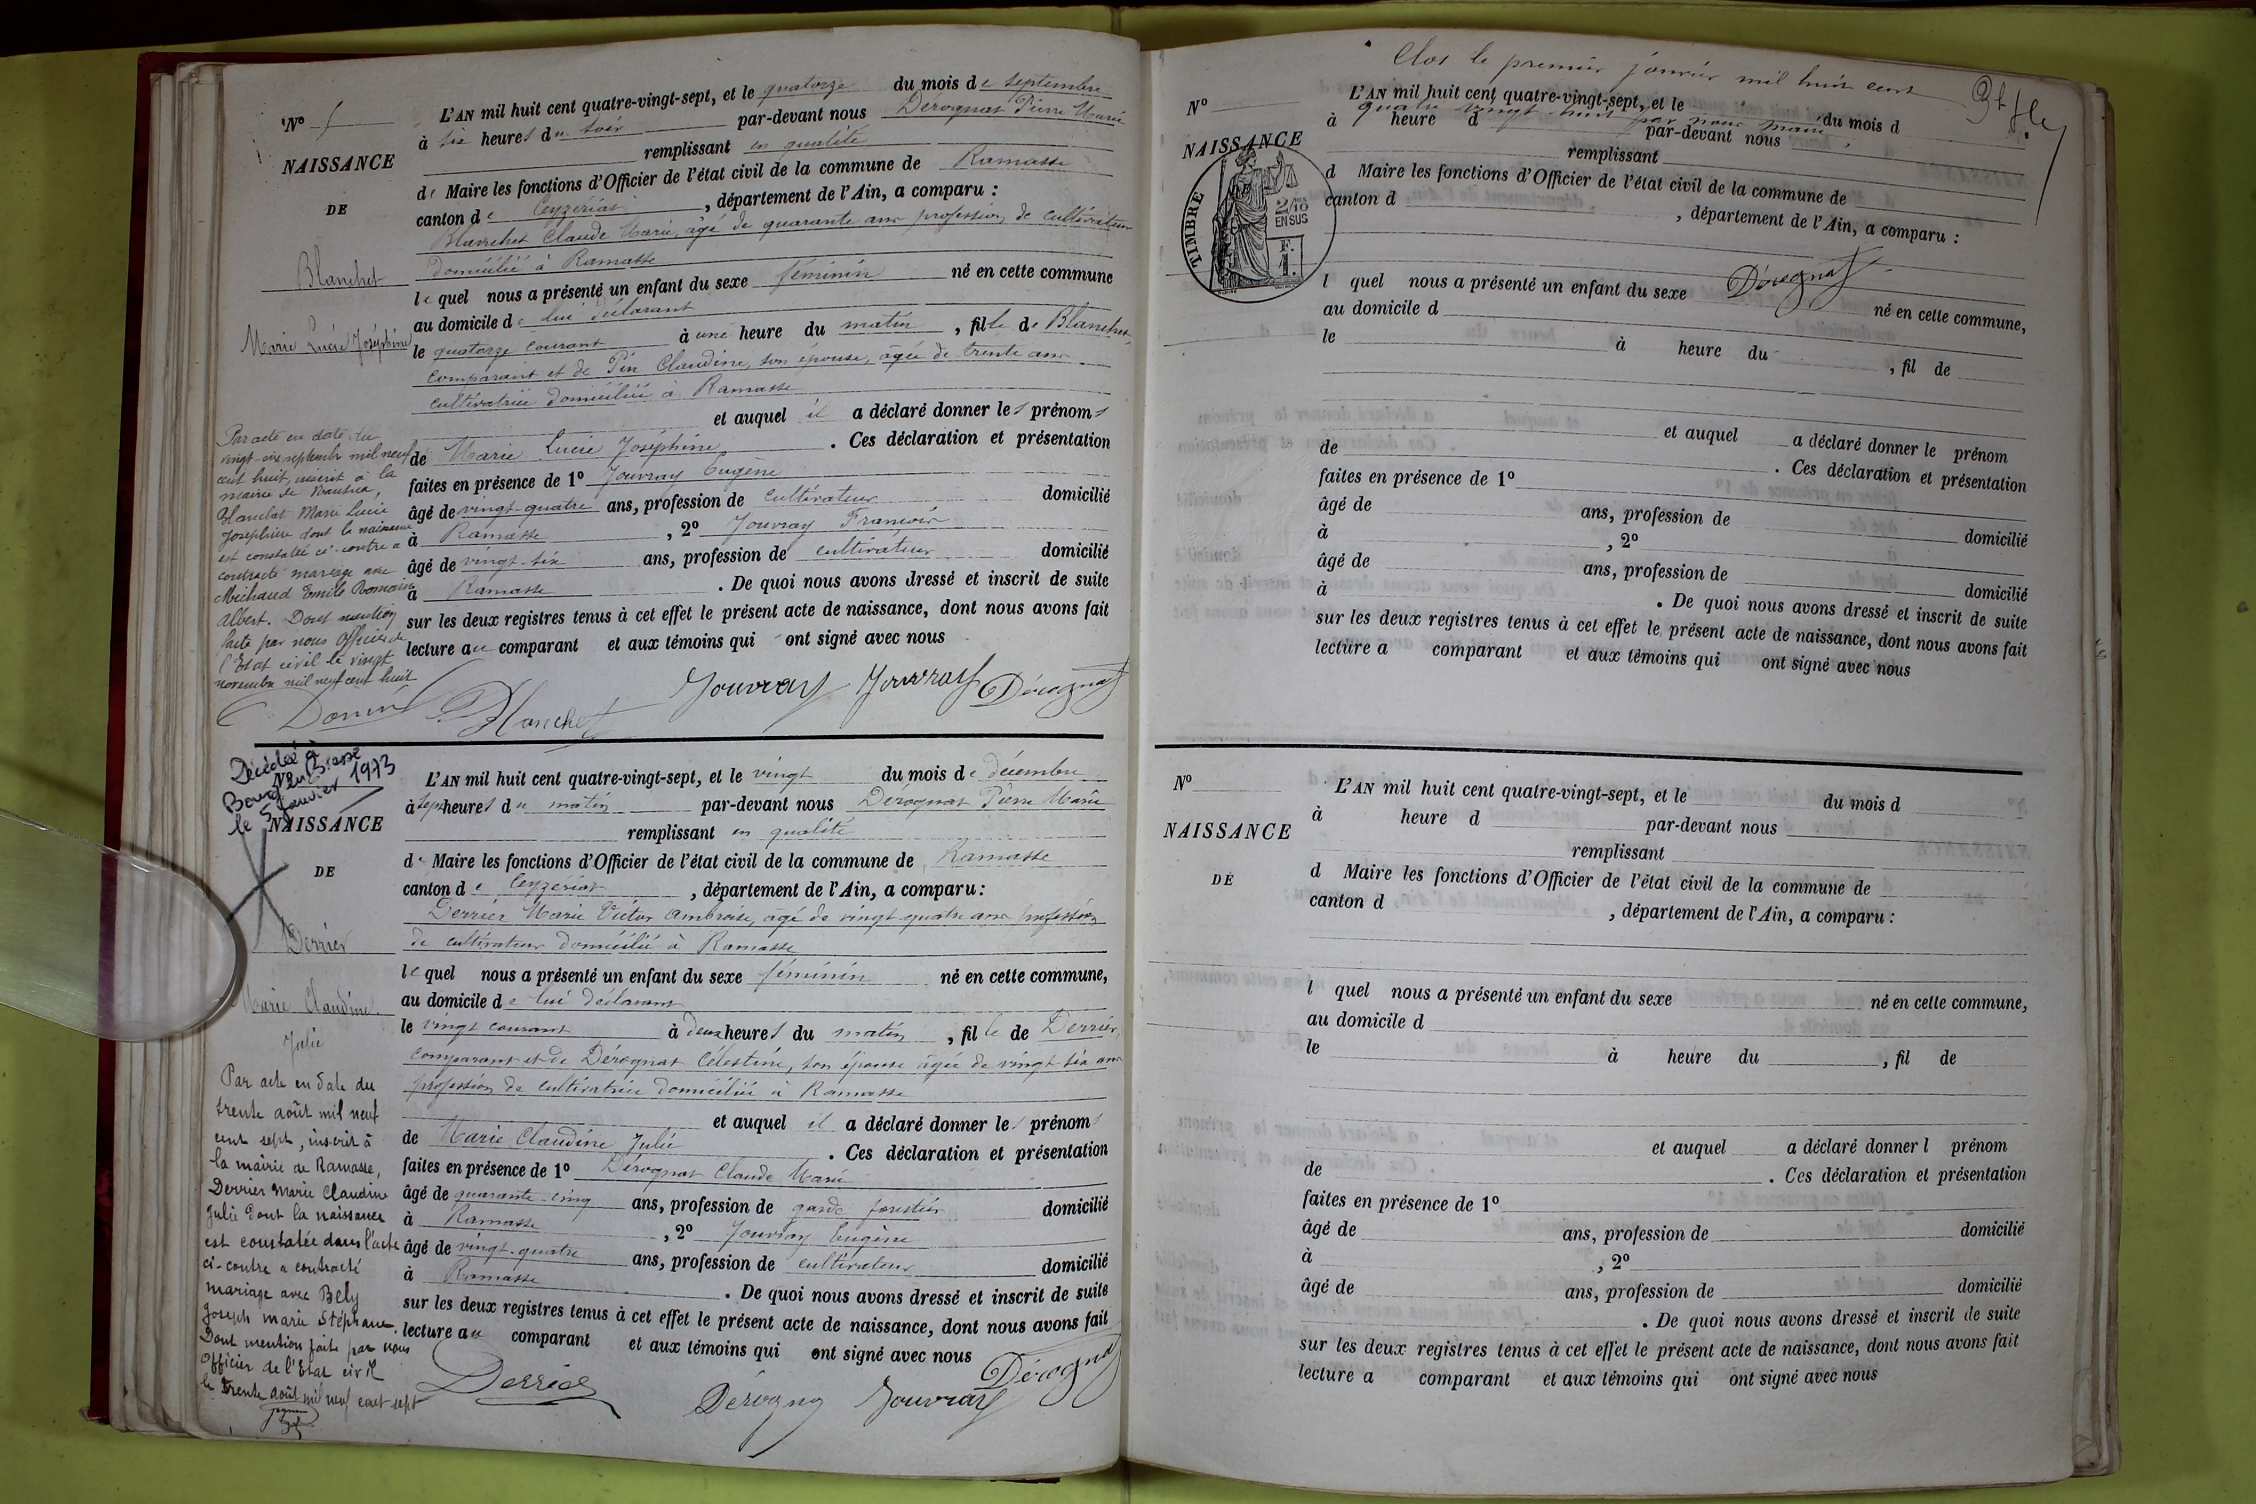 N° 5
NAISSANCE
DE
Blanchet
Marie Lucie Joséphine
L'AN mil huit cent quatre-vingt-sept, et le quatorze du mois de septembre
à six heures du soir par-devant nous Dérognat Pierre Marie
remplissant en qualité
de Maire les fonctions d'Officier de l'état civil de la commune de Ramasse
canton de Ceyzeriat, département de l'Ain, a comparu :
Blanchet Claude Marie, âgé de quarante ans profession de cultivateur
domicilié à Ramasse
lequel nous a présenté un enfant du sexe féminin né en cette commune
au domicile de lui déclarant
le quatorze courant à une heure du matin, fille de Blanchet,
comparant et de Pin Claudine, son épouse, âgée de trente ans
cultivatrice domiciliée à Ramasse
et auquel il a déclaré donner les prénoms
de Marie Lucie Joséphine. Ces déclaration et présentation
faites en présence de 1° Jouvray Eugène
âgé de vingt-quatre ans, profession de cultivateur domicilié
à Ramasse, 2° Jouvray François
âgé de vingt-six ans, profession de cultivateur domicilié
à Ramasse. De quoi nous avons dressé et inscrit de suite
sur les deux registres tenus à cet effet le présent acte de naissance, dont nous avons fait
lecture au comparant et aux témoins qui ont signé avec nous
Blanchet Jouvray Jouvray Dérognat
Par acte en date du
vingt-six septembre mil neuf
cent huit, inscrit à la
mairie de
Blanchet Marie Lucie
Josephine dont la naissance
est constatée ci-contre a
contracté mariage avec
Michaud Emile Romain
Albert. Dont mention
faite par nous Officier de
l'Etat civil le vingt
novembre mil neuf cent huit
Décédée à
Bourg en Bresse
le 5 janvier 1973
NAISSANCE
DE
Derrier
Marie Claudine
Julie
L'AN mil huit cent quatre-vingt-sept, et le vingt du mois de décembre
à sept heures du matin par-devant nous Dérognat Pierre Marie
remplissant en qualité
de Maire les fonctions d'Officier de l'état civil de la commune de Ramasse
canton de Ceyzeriat, département de l'Ain, a comparu :
Derrier Marie Victor Ambroise, âgé de vingt-quatre ans profession
de cultivateur domicilié à Ramasse
lequel nous a présenté un enfant du sexe féminin né en cette commune,
au domicile de lui déclarant
le vingt courant à deux heures du matin, fille de Derrier,
comparant et de Dérognat Célestine, son épouse âgée de vingt-six ans
profession de cultivatrice domiciliée à Ramasse
et auquel il a déclaré donner les prénoms
de Marie Claudine Julie. Ces déclaration et présentation
faites en présence de 1° Dérognat Claude Marie
âgé de quarante-cinq ans, profession de garde forestier domicilié
à Ramasse, 2° Jouvray Eugène
âgé de vingt-quatre ans, profession de cultivateur domicilié
à Ramasse. De quoi nous avons dressé et inscrit de suite
sur les deux registres tenus à cet effet le présent acte de naissance, dont nous avons fait
lecture au comparant et aux témoins qui ont signé avec nous
Derrier Dérognat Jouvray Dérognat
Par acte en date du
trente août mil neuf
cent sept, inscrit à
la mairie de Ramasse,
Derrier Marie Claudine
Julie dont la naissance
est constatée dans l'acte
ci-contre a contracté
mariage avec Bely
Joseph Marie Stéphane.
Dont mention faite par nous
Officier de l'Etat civil
le trente août mil neuf cent sept
Clos le premier janvier mil huit cent
quatre vingt huit par nous maire
Dérognat
N°
NAISSANCE
TIMBRE
2/10
EN SUS
F.
1.
L'AN mil huit cent quatre-vingt-sept, et le du mois d
à heure d par-devant nous
remplissant
d Maire les fonctions d'Officier de l'état civil de la commune de
canton d , département de l'Ain, a comparu :
l quel nous a présenté un enfant du sexe
né en cette commune,
au domicile d
le à heure du , fil de
et auquel a déclaré donner le prénom
de . Ces déclaration et présentation
faites en présence de 1°
âgé de ans, profession de domicilié
à , 2°
âgé de ans, profession de domicilié
à . De quoi nous avons dressé et inscrit de suite
sur les deux registres tenus à cet effet le présent acte de naissance, dont nous avons fait
lecture a comparant et aux témoins qui ont signé avec nous
N°
NAISSANCE
DE
L'AN mil huit cent quatre-vingt-sept, et le du mois d
à heure d par-devant nous
remplissant
d Maire les fonctions d'Officier de l'état civil de la commune de
canton d , département de l'Ain, a comparu :
l quel nous a présenté un enfant du sexe né en cette commune,
au domicile d
le à heure du , fil de
et auquel a déclaré donner l prénom
de . Ces déclaration et présentation
faites en présence de 1°
âgé de ans, profession de domicilié
à , 2°
âgé de ans, profession de domicilié
. De quoi nous avons dressé et inscrit de suite
sur les deux registres tenus à cet effet le présent acte de naissance, dont nous avons fait
lecture a comparant et aux témoins qui ont signé avec nous